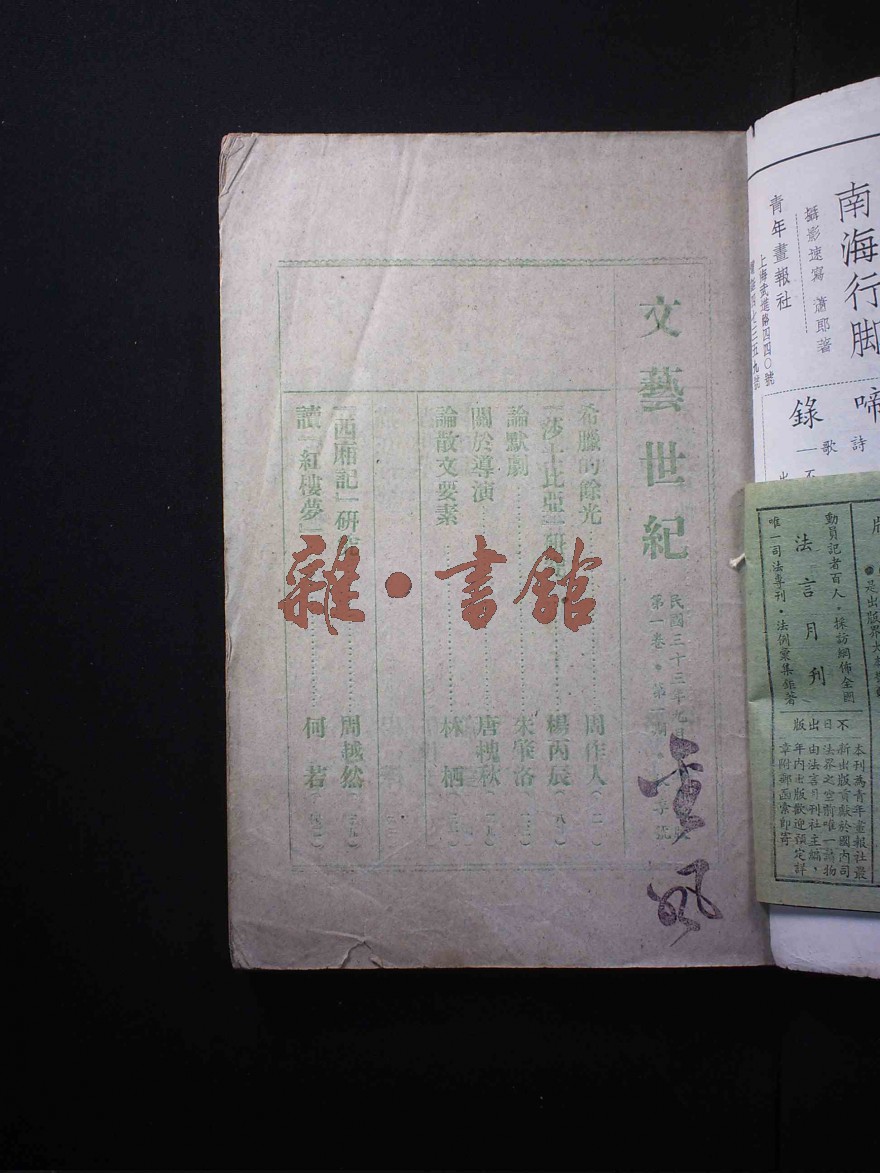 南海行脚
攝影速寫 蕭耶著
青年畫報社
上海武進路四四〇號
啼
錄
詩
歌
動員記者百人・採訪網佈全國
法言月刊
唯一司法專刊・法例彙集鉅著
不日出版
本刊為青年畫報社最
新出版貢獻於國內司
法界之空前唯一讀物
由法言月刊社主編,
年內出版歡迎預定詳
章附郵函索即寄
文藝世紀
民國三十三年九月
第一卷・第一期
希臘的餘光 周作人
楊丙辰
論默劇 朱肇洛
關於導演 唐槐秋
論散文要素 林栖
「西廂記」研究 周越然
讀「紅樓夢」 何若
雜・書館